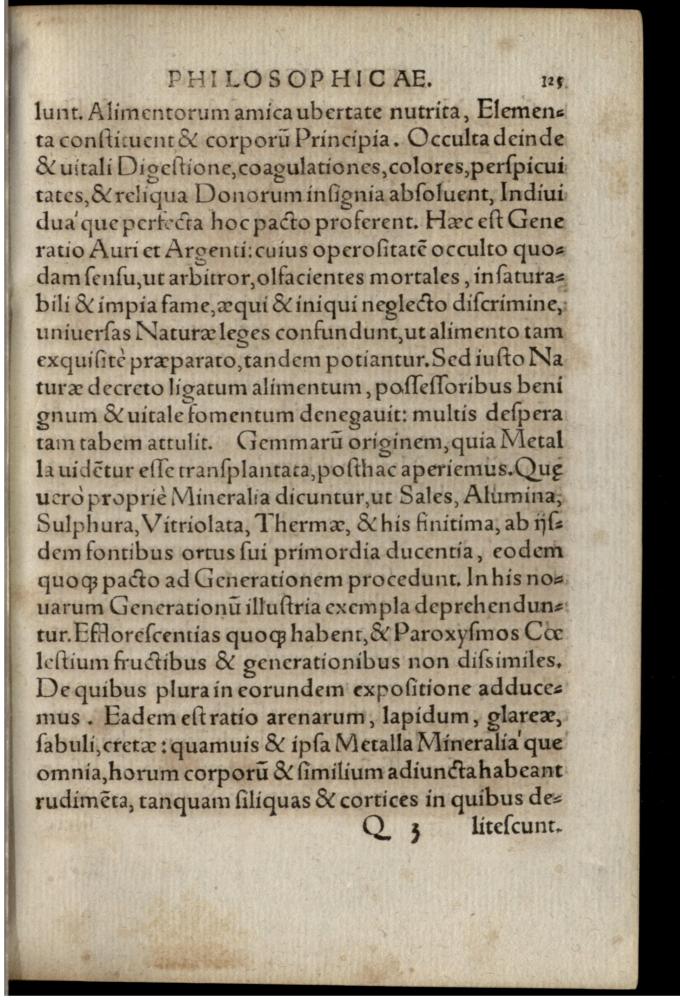 PHILOSOPHICAE. 125
lunt. Alimentorum amica ubertate nutrita, Elemen⸗
ta conſtituent & corporū Principia. Occulta deinde
& uitali Digeſtione, coagulationes, colores, perſpicui
tates, & reliqua Donorum inſignia abſoluent, Indiui
dua'que perfecta hoc pacto proferent. Hæc eſt Gene
ratio Auri et Argenti: cuius operoſitatē occulto quo⸗
dam ſenſu, ut arbitror, olfacientes mortales, inſatura⸗
bili & impia fame, æqui & iniqui neglecto diſcrimine,
uniuerſas Naturæ leges confundunt, ut alimento tam
exquiſitè præparato, tandem potiantur. Sed iuſto Na
turæ decreto ligatum alimentum, poſſeſſoribus beni
gnum & uitale fomentum denegauit: multis deſpera
tam tabem attulit. Gemmarū originem, quia Metal
la uidētur eſſe tranſplantata, poſthac aperiemus. Quę
uerò propriè Mineralia dicuntur, ut Sales, Alumina,
Sulphura, Vitriolata, Thermæ, & his finitima, ab ijſ⸗
dem fontibus ortus ſui primordia ducentia, eodem
quoqȝ pacto ad Generationem procedunt. In his no⸗
uarum Generationū illuſtria exempla deprehendun⸗
tur. Effloreſcentias quoqȝ habent, & Paroxyſmos Cœ
leſtium fructibus & generationibus non diſsimiles.
De quibus plura in eorundem expoſitione adduce⸗
mus. Eadem eſt ratio arenarum, lapidum, glareæ,
ſabuli, cretæ: quamuis & ipſa Metalla Mineralia'que
omnia, horum corporū & ſimilium adiuncta habeant
rudimēta, tanquam ſiliquas & cortices in quibus de⸗
Q 3 liteſcunt.